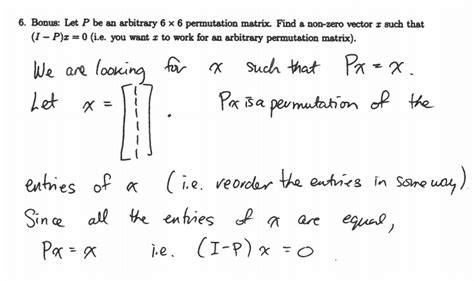 6. Bonus: Let P be an arbitrary 6 × 6 permutation matrix. Find a non-zero vector x such that
(I − P)x = 0 (i.e. you want x to work for an arbitrary permutation matrix).
We are looking for x such that Px = x.
Let x = [1 1 1 1 1 1]. Px is a permutation of the
entries of x (i.e. reorder the entries in some way)
Since all the entries of x are equal,
Px = x i.e. (I-P)x = 0